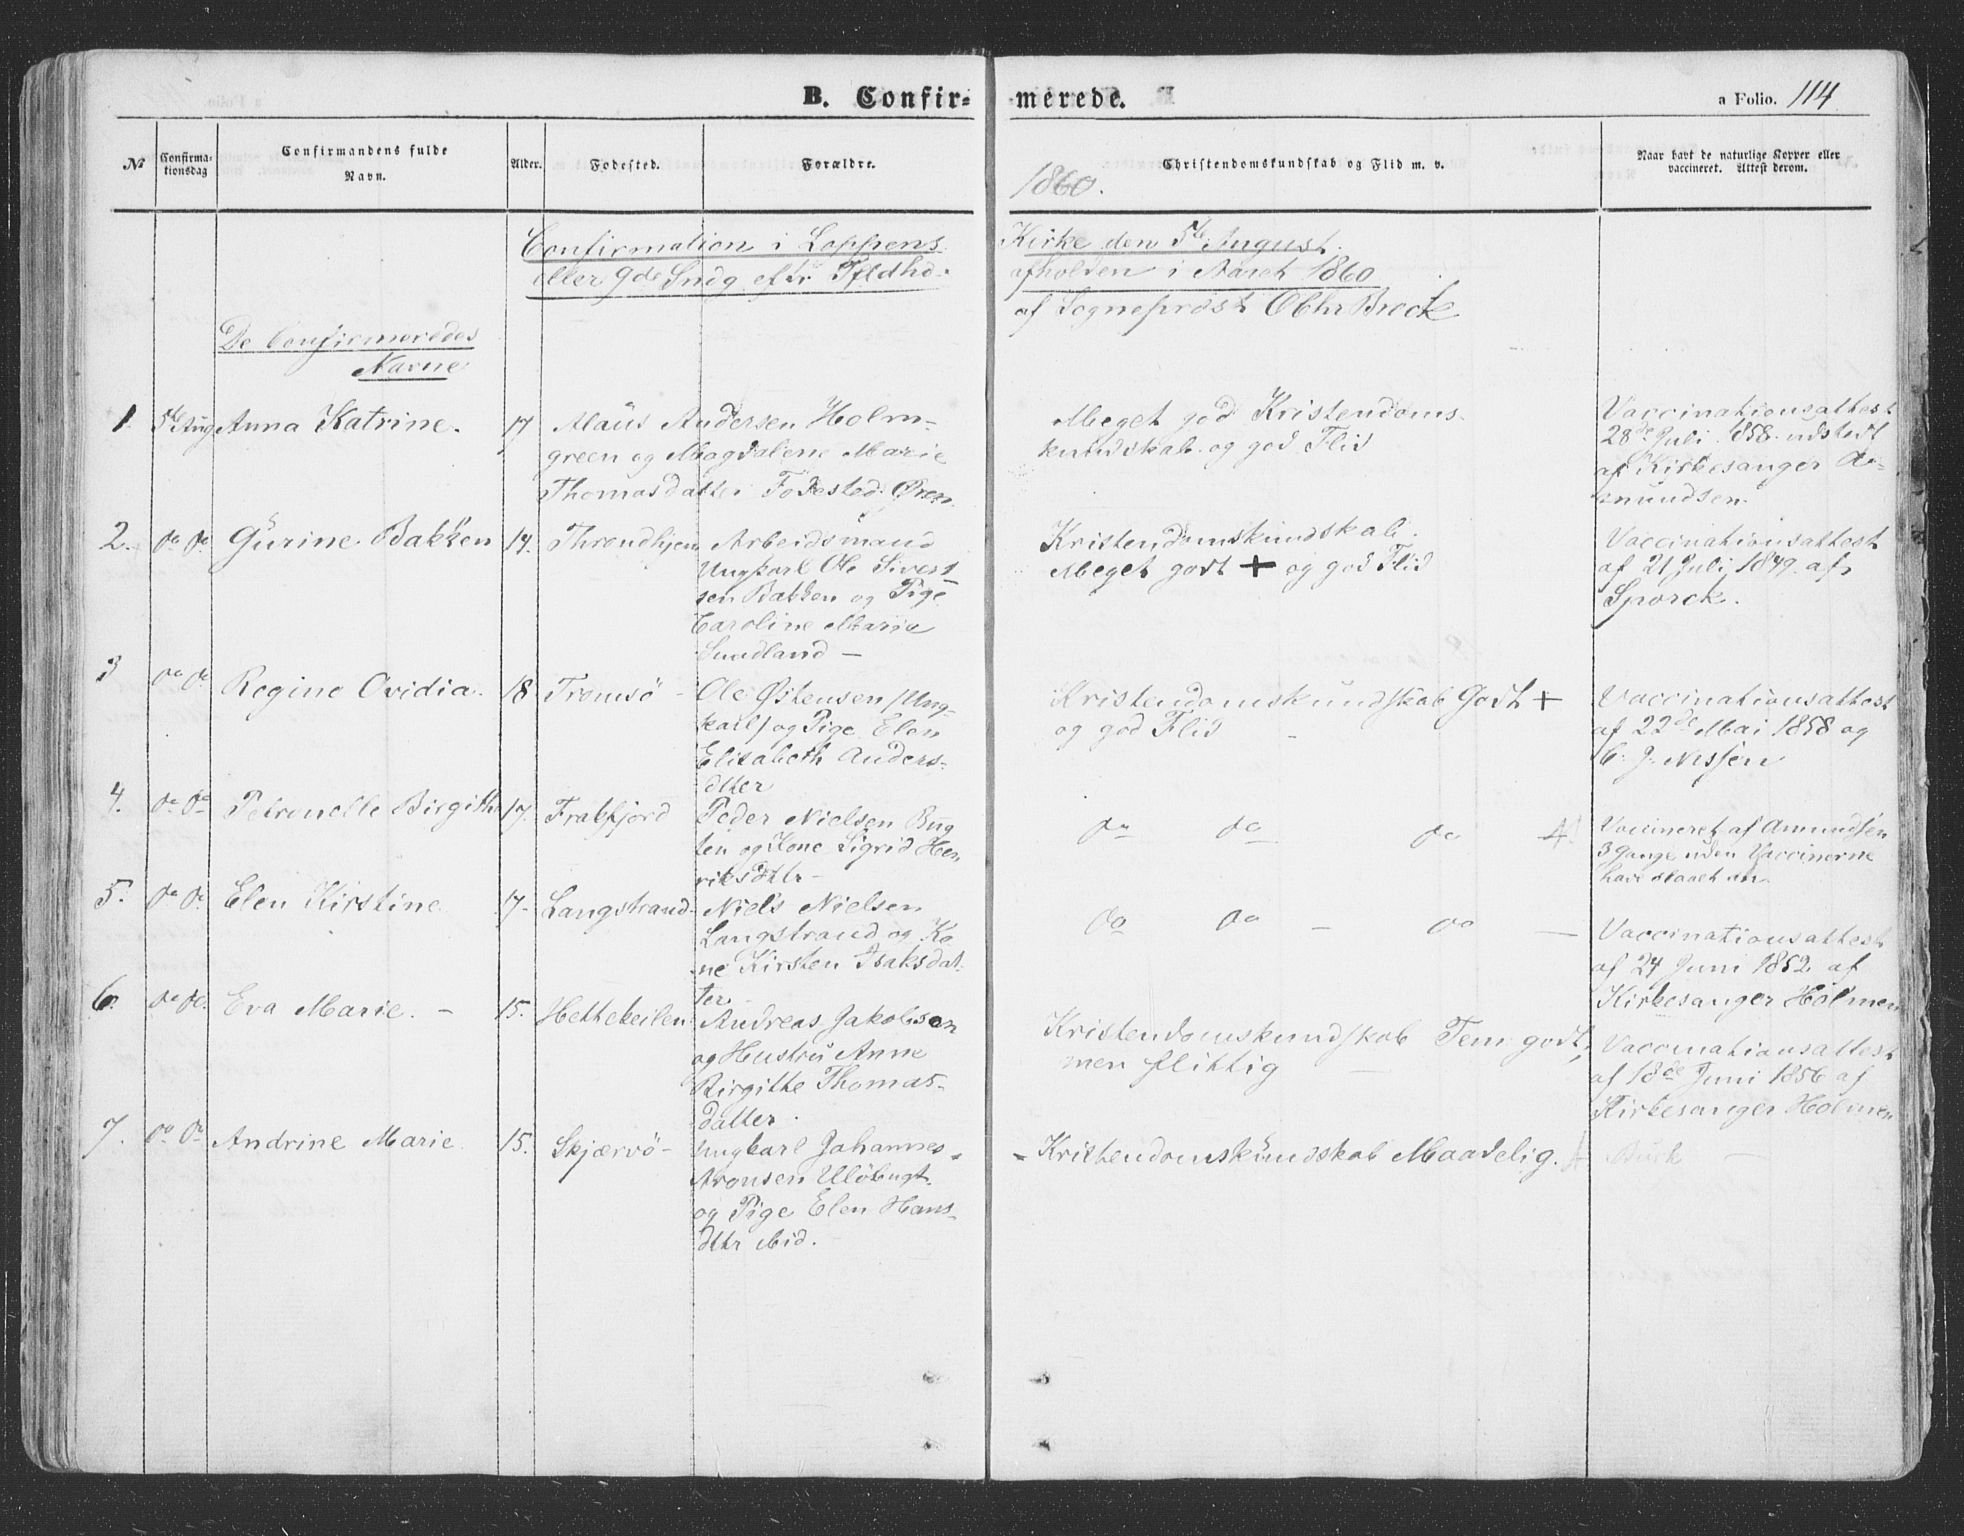 B. Confir-merede.
a Folio. 114
No
Confirma-
tionsdag
Confirmandens fulde
Navn.
Alder.
Fødested.
Forældre.
Christendomskundskab og Flid m. v.
Naar havt de naturlige Kopper eller
vaccineret. Attest derom.
1860.
Confirmation i Loppens Kirke den 5te August
eller 9de Sndg eftr afholden i Aaret 1860
af Sogneprest Brock
De Confirmeredes
Navne
1. 5te Aug Anna Katrine. 17
Andersen Holm-
green og Magdalene Marie
Thomasdatter Födested: Øren
Meget god Kristendoms-
kundskab og god Flid
Vaccinationsattest
28de Juli 1858 udstedt
af Kirkesanger A-
mundsen
2. do do Gurine Bakken 14. Throndhjem
Arbeidsmand
Ungkarl Ole Sivert
sen Bakken og Pige
Caroline Marie
Sundland —
Kristendomskundskab
Meget godt + og god Flid
Vaccinationsattest
af 21 Juli 1849. af
Sporck.
3 do do Regine Ovidia. 18 Tromsö -
Ole Østensen /Ung-
karl/ og Pige Elen
Elisabeth Anders-
dtter
Kristendomskundskab Godt +
og god Flid
Vaccinationsattest
af 22de Mai 1858 og
C. J. Nissen
4. do do Petronelle Birgitte 17. Frakfjord
Peder Nielsen Bug
ten og Kone Sigrid Hen
riksdttr -
do do do
Vaccineret af Amundsen
3 gange uden Vaccinerne
have slaaet an
5. do do Elen Kirstine 17. Langstrand
Niels Nielsen
Langstrand og Ko
ne Kirsten Isaksdat-
ter
do do - do —
Vaccinationsattest
af 24 Juni 1852 af
Kirkesanger Holmen
6. do do. Eva Marie. - 15. Hettekeilen
Andreas Jakobsen
og Hustru Anne
Birgitte Thomas-
datter.
Kristendomskundskab Tem: godt,
men flittig
Vaccinationsattest
af 18de Juni 1856 af
Kirkesanger Holmen
7. do do Andrine Marie. 15. Skjærvö -
Ungkarl Johannes
Aronsen Ulöbugt
og Pige Elen Hans-
dttr ibid.
- Kristendomskundskab Maadelig.